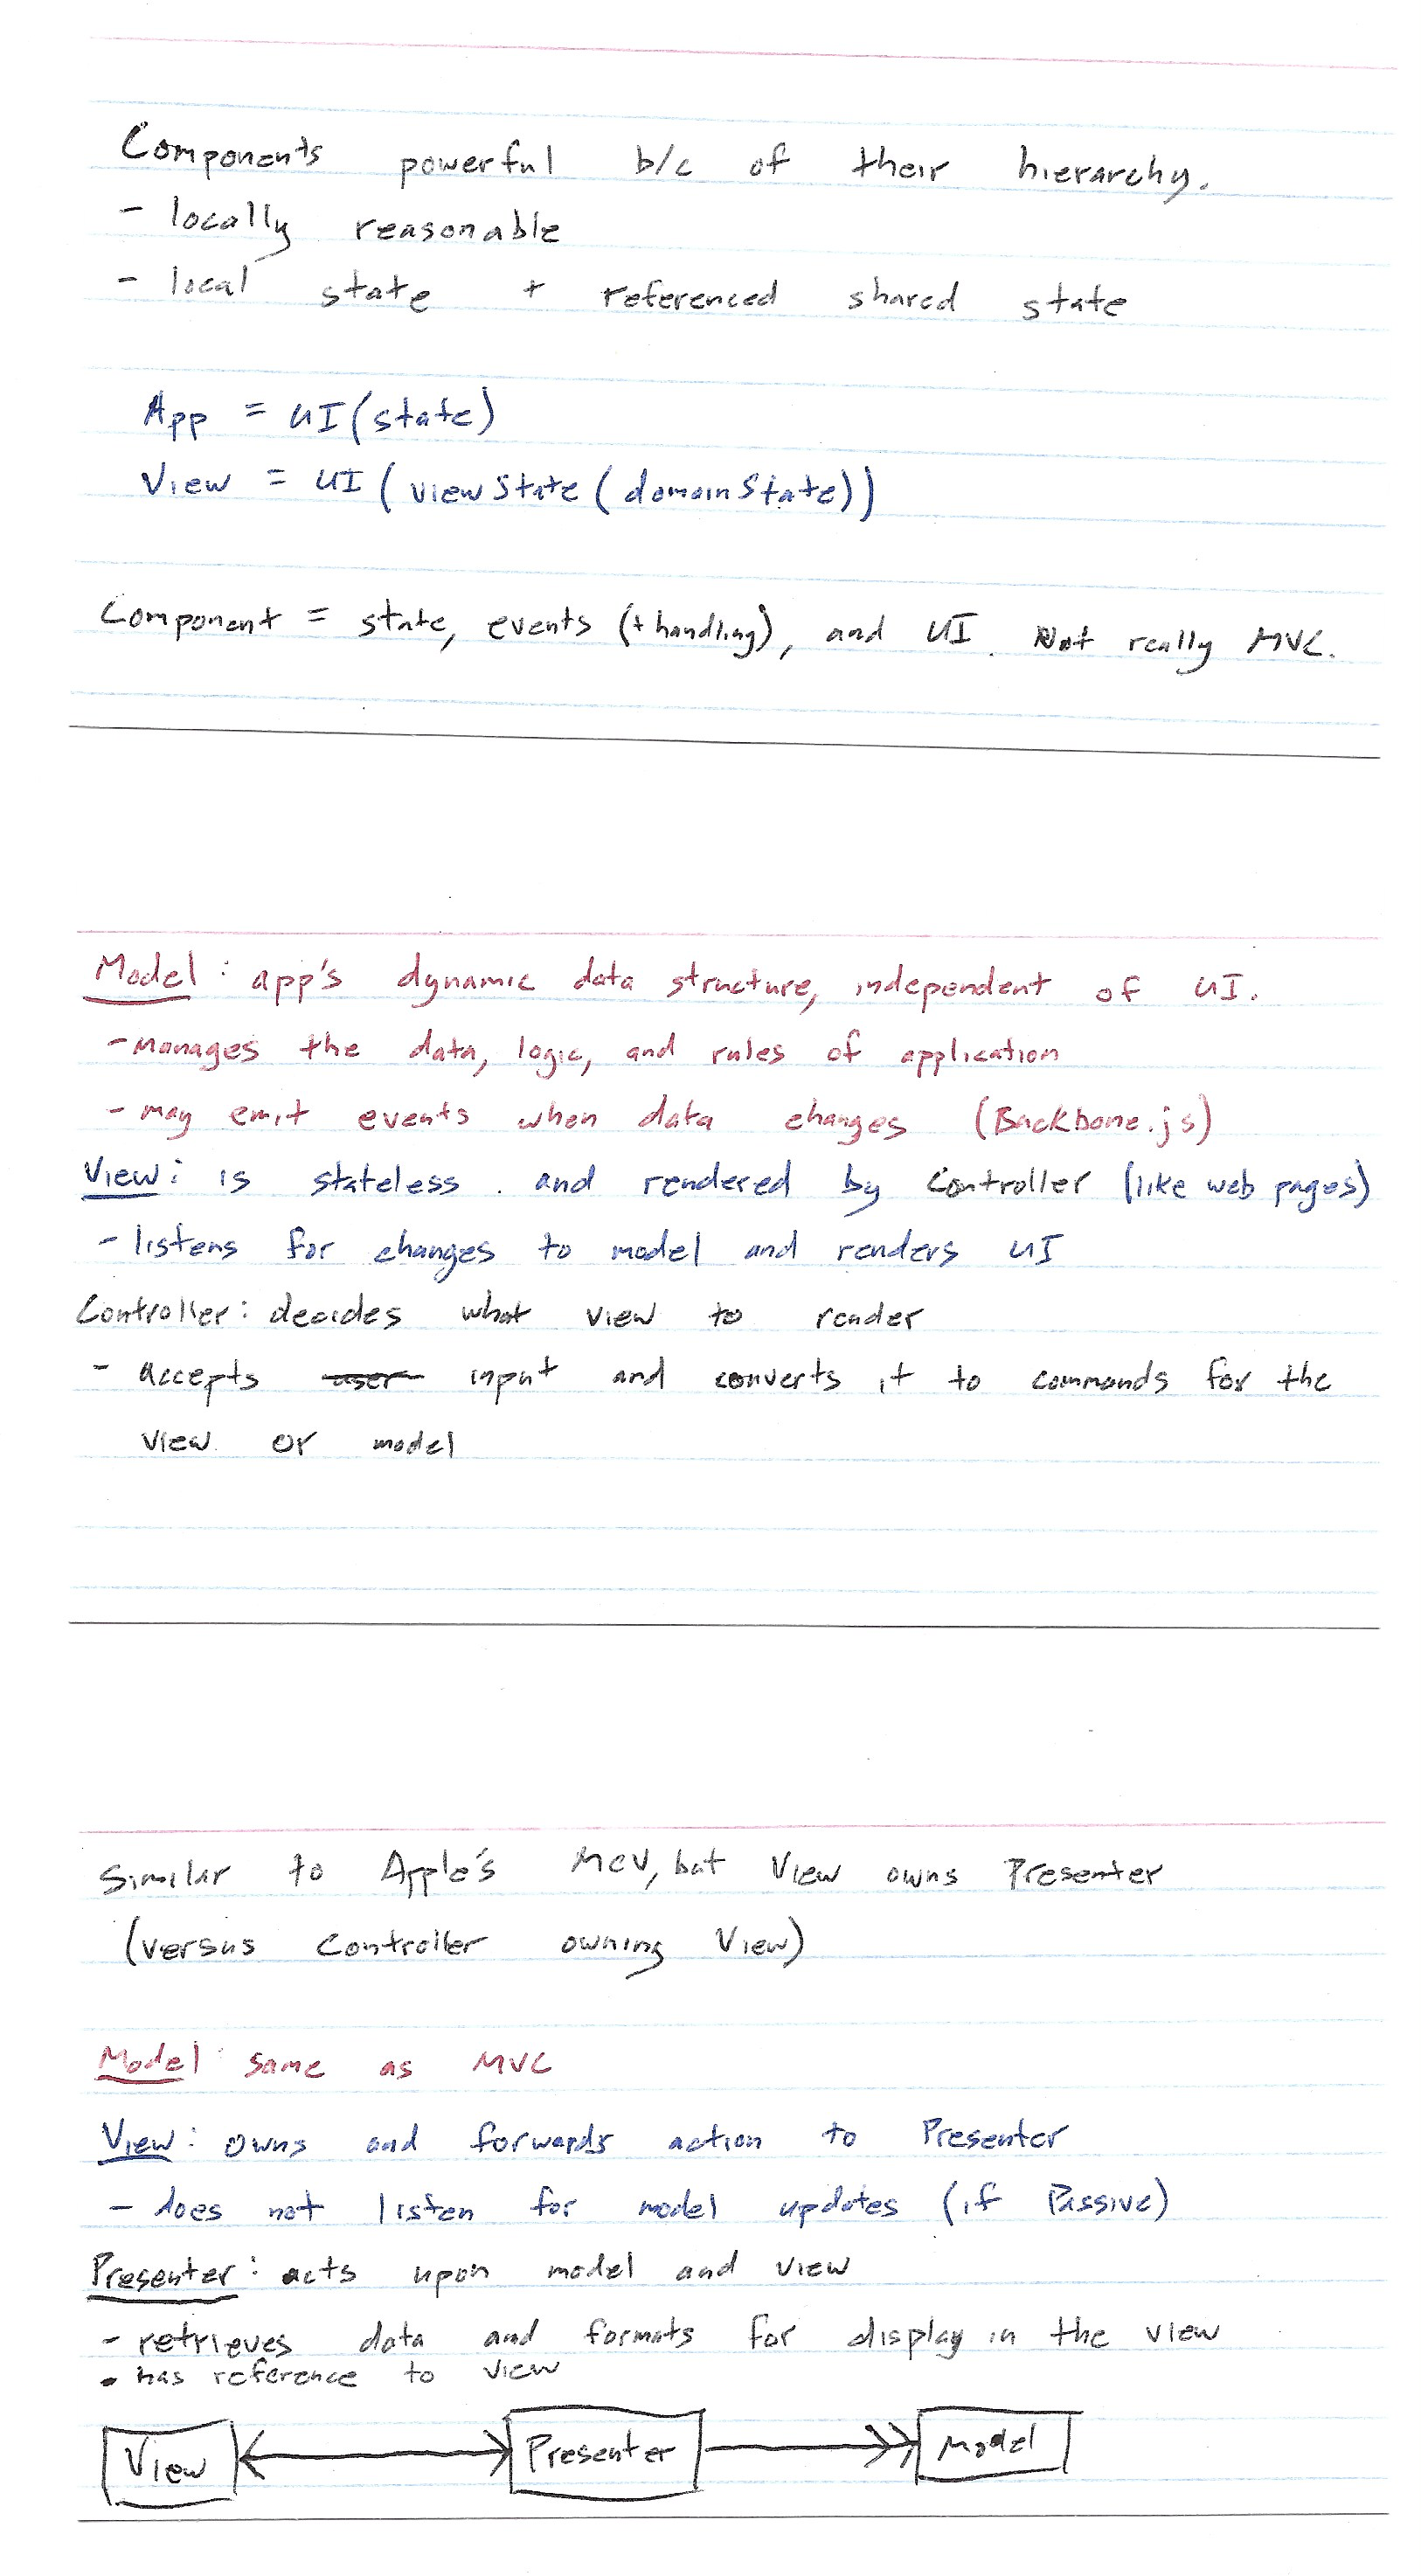 Components powerful b/c of their hierarchy.
- locally reasonable
- local state + referenced shared state
App = UI(state)
View = UI(viewState(domainState))
Component = state, events (+ handling), and UI. Not really MVC.
Model: app's dynamic data structure, independent of UI.
- manages the data, logic, and rules of application
- may emit events when data changes (Backbone.js)
View: is stateless and rendered by Controller (like web pages)
- listens for changes to model and renders UI
Controller: decides what view to render
- accepts user input and converts it to commands for the
view or model
Similar to Apple's MCV, but View owns Presenter
(versus Controller owning View)
Model: same as MVC
View: owns and forwards action to Presenter
- does not listen for model updates (if Passive)
Presenter: acts upon model and view
- retrieves data and formats for display in the view
• has reference to view
View Presenter Model